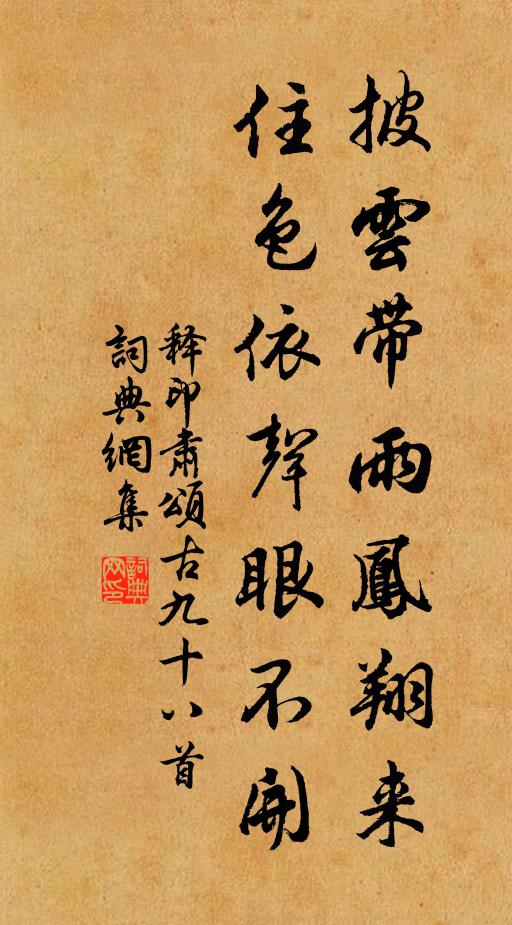 披雲帶雨鳳翔来
住色依聲眼不開
釋印肅頌古九十八首
詞典網集
詞典网印